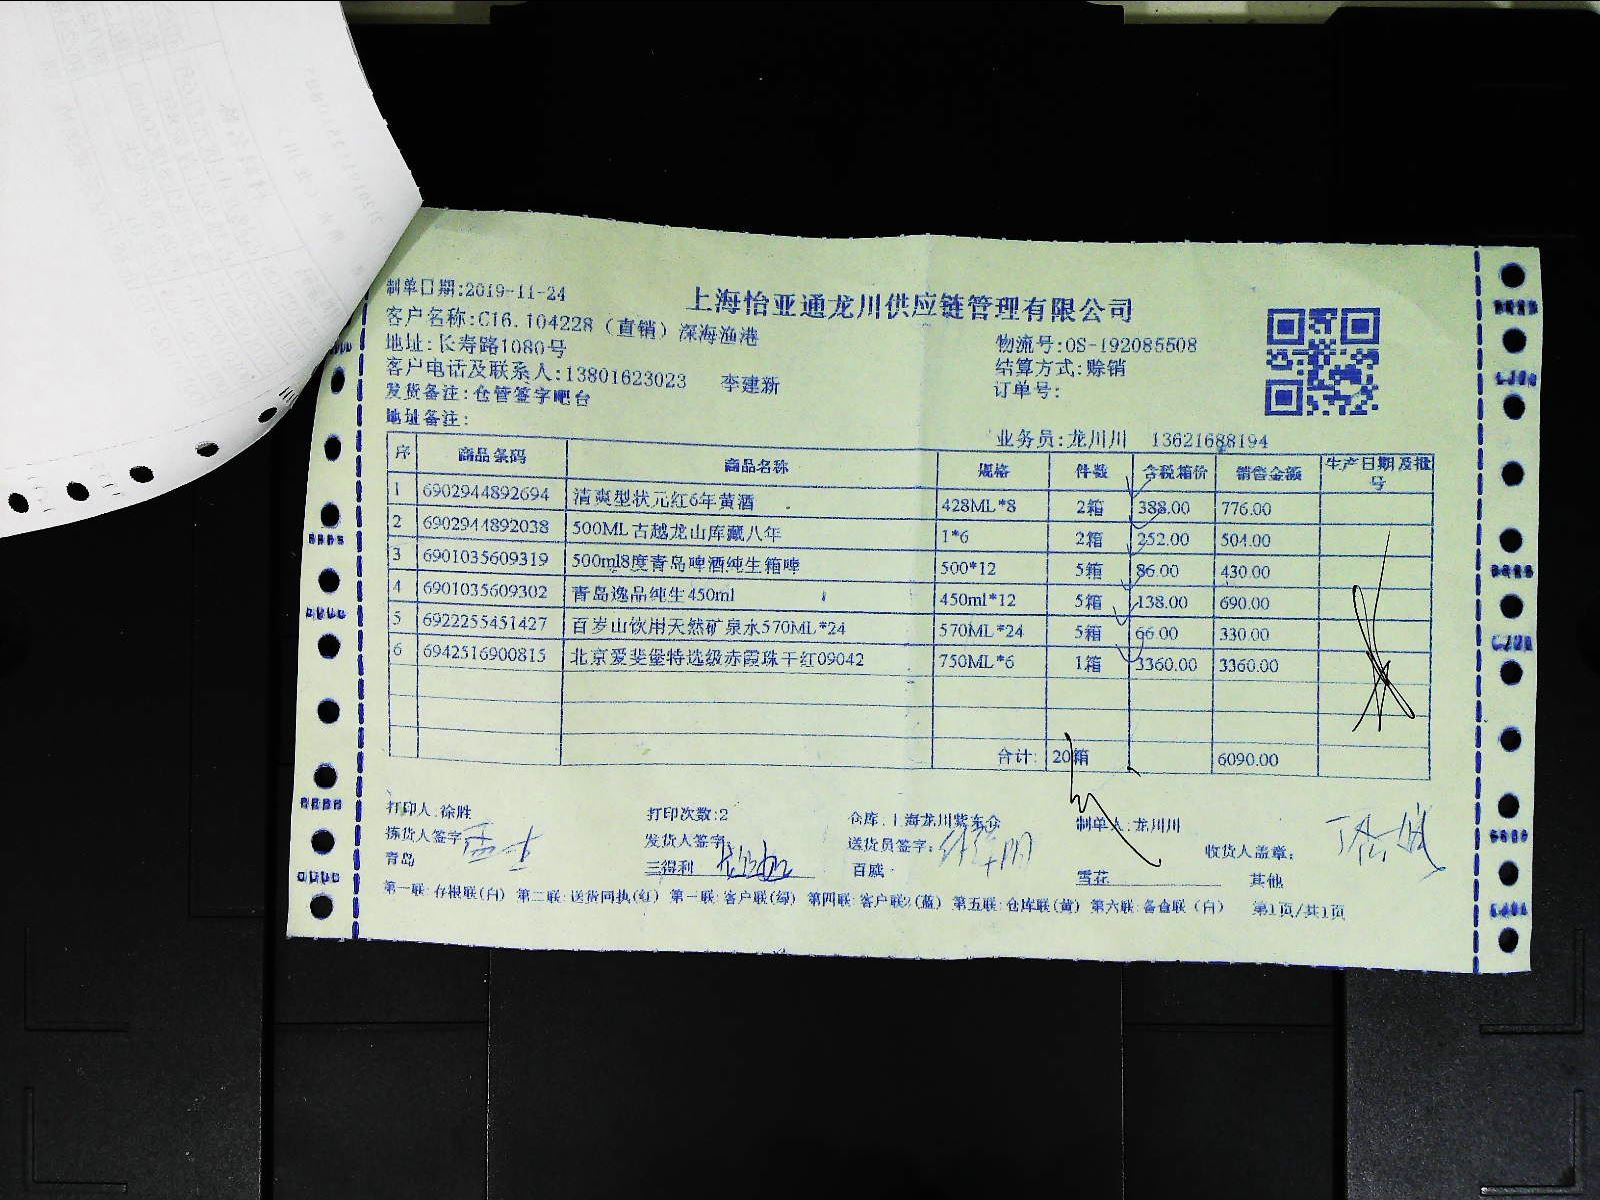 制单日期:2019-11-24
上海怡亚通龙川供应链管理有限公司
客户名称:C16.104228（直销）深海渔港
地址:长寿路1080号
物流号:OS-192085508
客户电话及联系人:13801623023 李建新
结算方式:赊销
发货备注:仓管签字吧台
订单号:
地址备注:
业务员:龙川川 13621688194
序 商品条码 商品名称 规格 件数 含税箱价 销售金额 生产日期及批号
1 6902944892694 清爽型状元红6年黄酒 428ML*8 2箱 388.00 776.00
2 6902944892038 500ML古越龙山库藏八年 1*6 2箱 252.00 504.00
3 6901035609319 500ml8度青岛啤酒纯生箱啤 500*12 5箱 86.00 430.00
4 6901035609302 青岛逸品纯生450ml 450ml*12 5箱 138.00 690.00
5 6922255451427 百岁山饮用天然矿泉水570ML*24 570ML*24 5箱 66.00 330.00
6 6942516900815 北京爱斐堡特选级赤霞珠干红09042 750ML*6 1箱 3360.00 3360.00
合计: 20箱 6090.00
打印人:徐胜 打印次数:2 仓库:上海龙川紫东仓 制单人:龙川川
拣货人签字 发货人签字 送货员签字: 收货人盖章:
青岛 三得利 百威 雪花 其他
第一联:存根联(白) 第二联:送货回执(红) 第一联:客户联(绿) 第四联:客户联2(蓝) 第五联:仓库联(黄) 第六联:备查联(白) 第1页/共1页